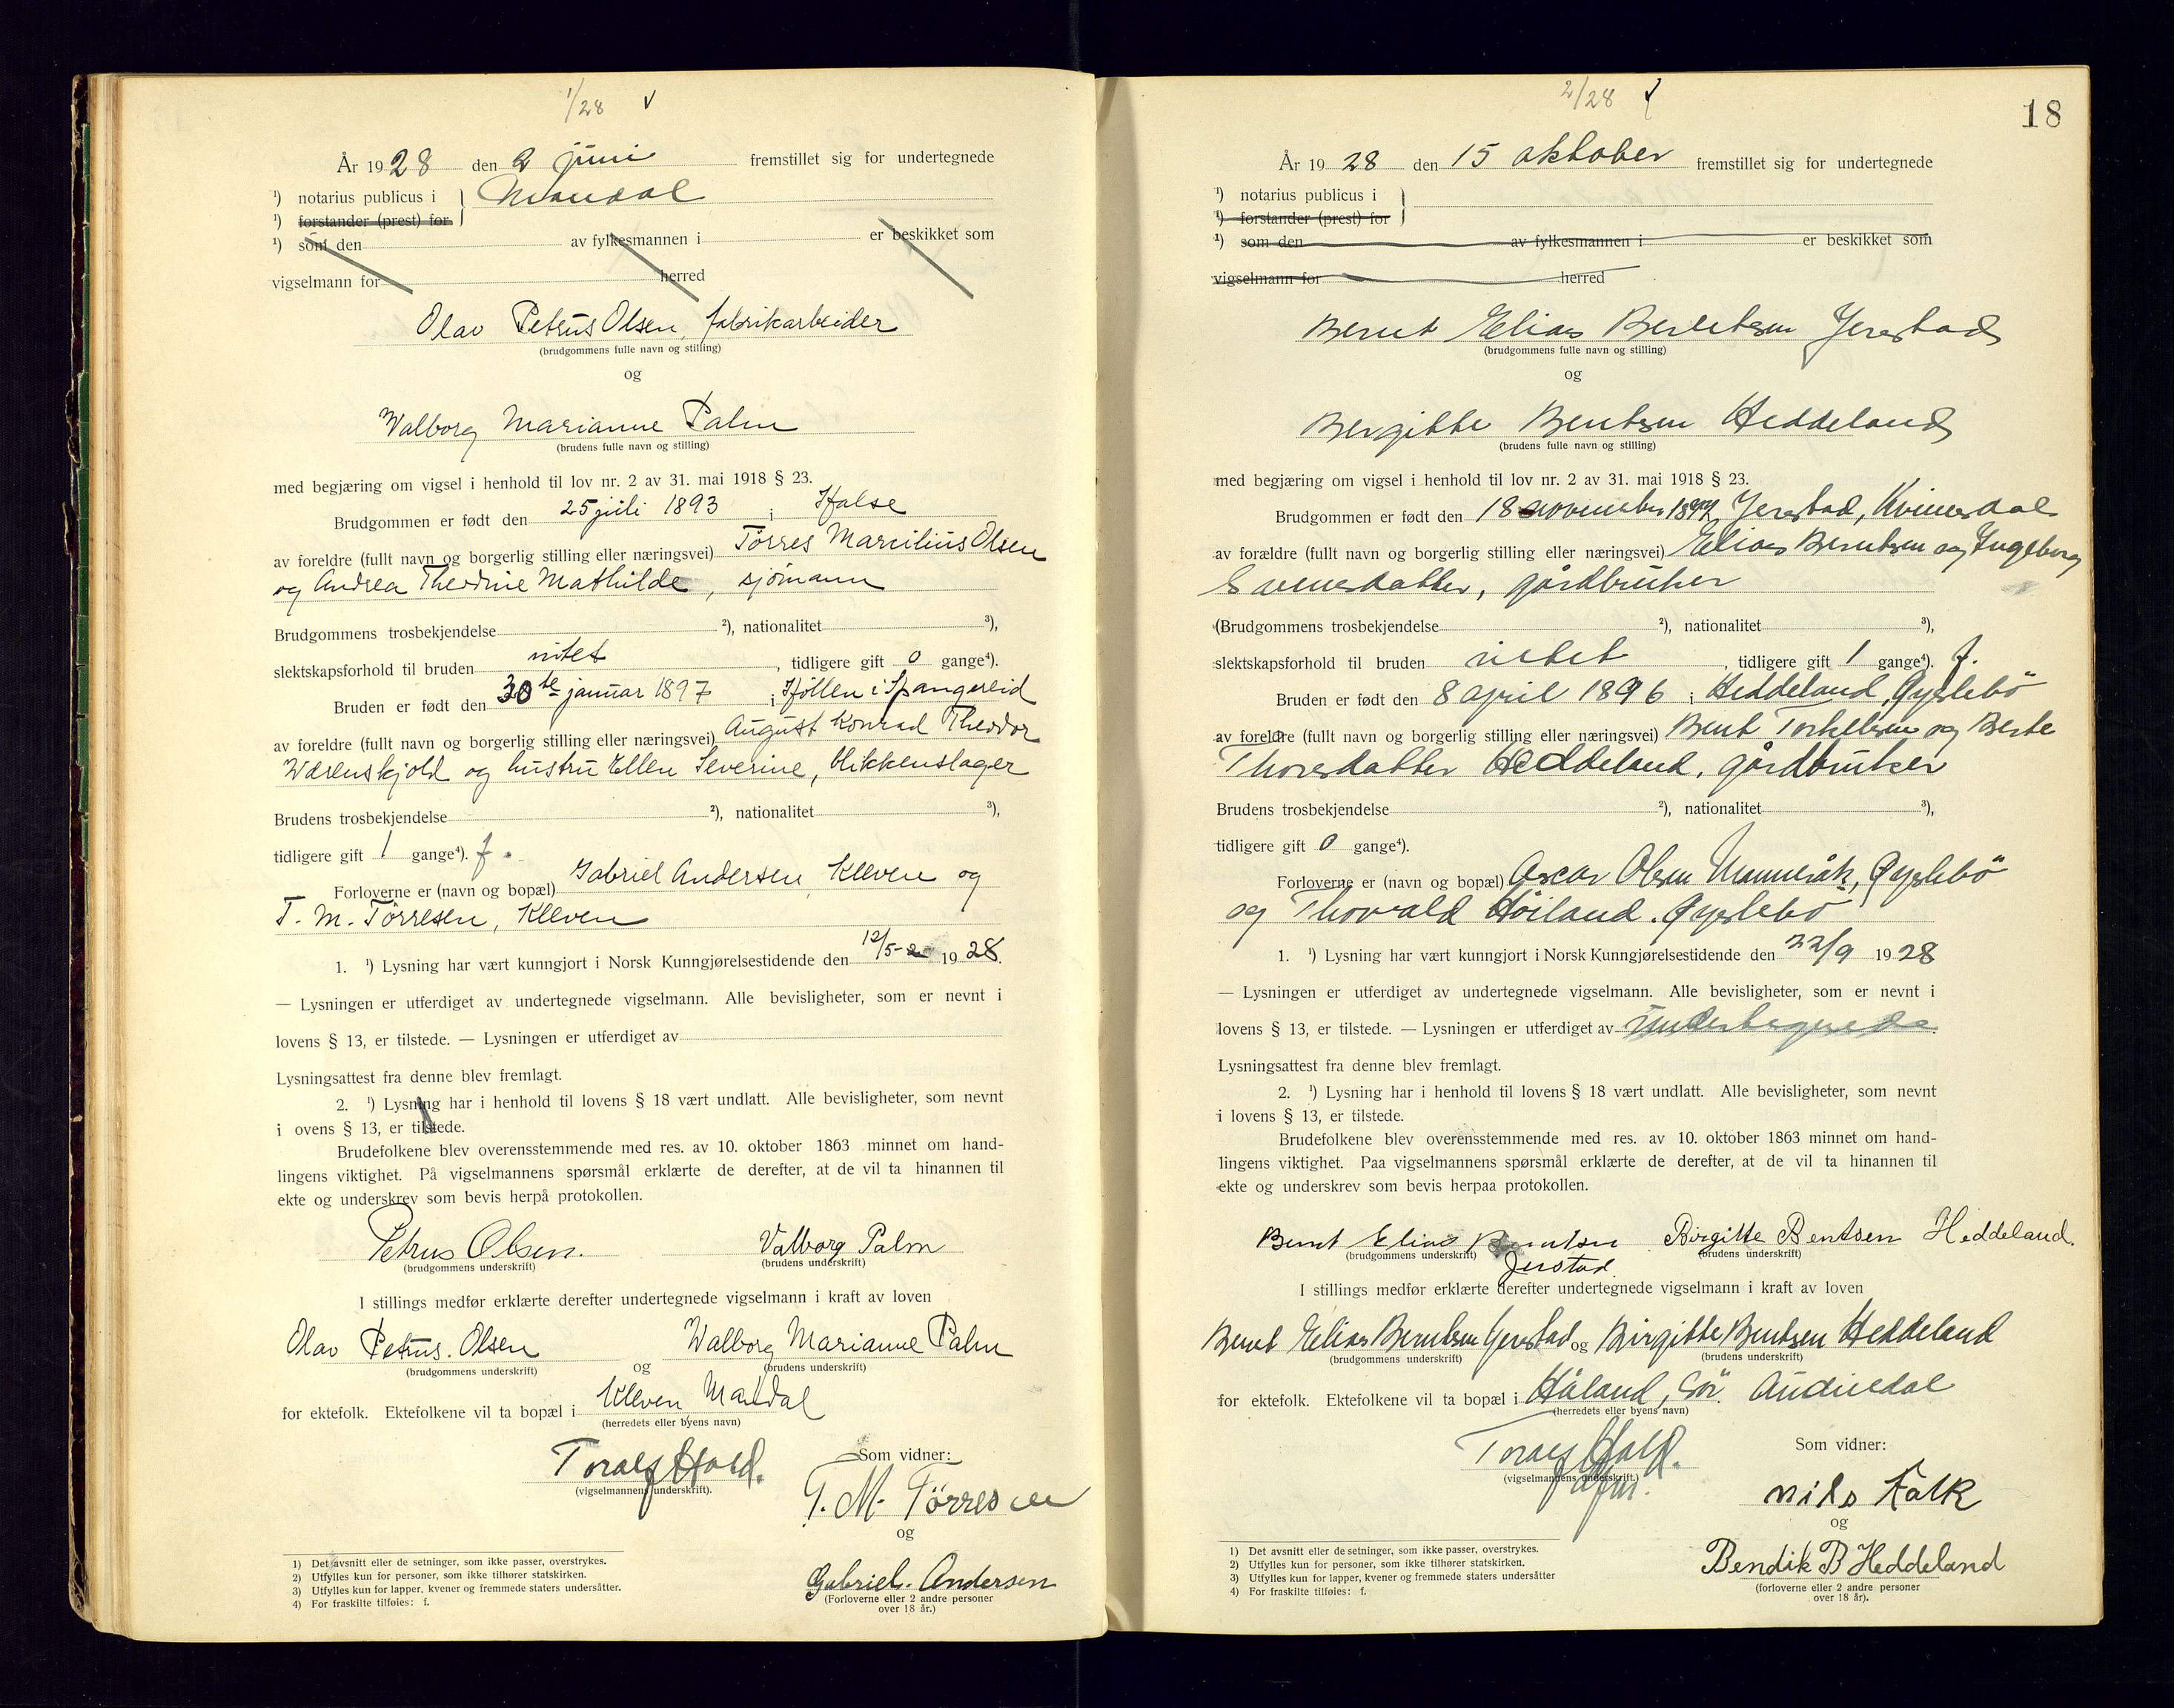 1/28 v
År 1928 den 2 juni fremstillet sig for undertegnede
¹) notarius publicus i } Mandal
¹) forstander (prest) for
¹) som den av fylkesmannen i er beskikket som
vigselmann for herred
Olav Petrus Olsen, fabrikarbeider
(brudgommens fulle navn og stilling)
og
Valborg Marianne Palm
(brudens fulle navn og stilling)
med begjæring om vigsel i henhold til lov nr. 2 av 31. mai 1918 § 23.
Brudgommen er født den 25 juli 1893 i Halse
av foreldre (fullt navn og borgerlig stilling eller næringsvei) Törres Marcilius Olsen
og Andrea Theodine Mathilde, sjömann
Brudgommens trosbekjendelse ²), nationalitet ³),
slektskapsforhold til bruden intet, tidligere gift 0 gange⁴).
Bruden er født den 30te januar 1897 i Höllen i Spangereid
av foreldre (fullt navn og borgerlig stilling eller næringsvei) August Konrad Theodor
Wærenskjold og hustru Ellen Severine, blikkenslager
Brudens trosbekjendelse ²), nationalitet ³),
tidligere gift 1 gange⁴). f.
Forloverne er (navn og bopæl) Gabriel Andersen, Kleven og
T. M. Törresen, Kleven
1. ¹) Lysning har vært kunngjort i Norsk Kunngjørelsestidende den 12/5- 1928.
— Lysningen er utferdiget av undertegnede vigselmann. Alle bevisligheter, som er nevnt i
lovens § 13, er tilstede. — Lysningen er utferdiget av
Lysningsattest fra denne blev fremlagt.
2. ¹) Lysning har i henhold til lovens § 18 vært undlatt. Alle bevisligheter, som nevnt
i ovens § 13, er tilstede.
Brudefolkene blev overensstemmende med res. av 10. oktober 1863 minnet om hand-
lingens viktighet. På vigselmannens spørsmål erklærte de derefter, at de vil ta hinannen til
ekte og underskrev som bevis herpå protokollen.
Petrus Olsen. Valborg Palm
(brudgommens underskrift) (brudens underskrift)
I stillings medfør erklærte derefter undertegnede vigselmann i kraft av loven
Olav Petrus. Olsen og Valborg Marianne Palm
(brudgommens underskrift) (brudens underskrift)
for ektefolk. Ektefolkene vil ta bopæl i Kleven Mandal
(herredets eller byens navn)
Toralf Hald. Som vidner:
(vigselmannens underskrift).
T. M. Törresen
og
Gabriel. Andersen
(Forloverne eller 2 andre personer
over 18 år.)
1) Det avsnitt eller de setninger, som ikke passer, overstrykes.
2) Utfylles kun for personer, som ikke tilhører statskirken.
3) Utfylles kun for lapper, kvener og fremmede staters undersåtter.
4) For fraskilte tilføies: f.
2/28 v
18
År 1928 den 15 oktober fremstillet sig for undertegnede
¹) notarius publicus i }
¹) forstander (prest) for
¹) som den av fylkesmannen i er beskikket som
vigselmann for herred
Bernt Elias Berntsen Jerstad
(brudgommens fulle navn og stilling)
og
Bergitte Bentsen Heddeland
(brudens fulle navn og stilling)
med begjæring om vigsel i henhold til lov nr. 2 av 31. mai 1918 § 23.
Brudgommen er født den 18 november Jerstad, Kvinesdal
av forældre (fullt navn og borgerlig stilling eller næringsvei) Elias Berntsen og Ingeborg
Svensdatter, gårdbruker
(Brudgommens trosbekjendelse ²), nationalitet ³),
slektskapsforhold til bruden intet, tidligere gift 1 gange⁴). f.
Bruden er født den 8 april 1896 i Heddeland, Øyslebö
av foreldre (fullt navn og borgerlig stilling eller næringsvei) Bent Torkelsen og Berte
Thoresdatter Heddeland, gårdbruker
Brudens trosbekjendelse ²), nationalitet ³),
tidligere gift 0 gange⁴).
Forloverne er (navn og bopæl) Oscar Olsen Manneråk, Øyslebö
og Thorvald Höiland. Øyslebö
1. ¹) Lysning har vært kunngjort i Norsk Kunngjørelsestidende den 22/9 1928
— Lysningen er utferdiget av undertegnede vigselmann. Alle bevisligheter, som er nevnt i
lovens § 13, er tilstede. — Lysningen er utferdiget av undertegnede
Lysningsattest fra denne blev fremlagt.
2. ¹) Lysning har i henhold til lovens § 18 vært undlatt. Alle bevisligheter, som nevnt
i lovens § 13, er tilstede.
Brudefolkene blev overensstemmende med res. av 10. oktober 1863 minnet om hand-
lingens viktighet. Paa vigselmannens spørsmål erklærte de derefter, at de vil ta hinannen til
ekte og underskrev som bevis herpaa protokollen.
Bernt Elias Berntsen Birgitte Bentsen Heddeland.
(brudgommens underskrift) (brudens underskrift)
Jerstad.
I stillings medfør erklærte derefter undertegnede vigselmann i kraft av loven
Bernt Elias Berntsen Jerstad og Birgitte Bentsen Heddeland
(brudgommens underskrift) (brudens underskrift)
for ektefolk. Ektefolkene vil ta bopæl i Håland, Sör Audnedal
(herredets eller byens navn)
Toralf Hald. Som vidner:
(vigselmannens underskrift.)
Nils Falk
og
Bendik B Heddeland
(forloverne eller 2 andre personer
over 18 år).
1) Det avsnitt eller de setninger, som ikke passer, overstrykes.
2) Utfylles kun for personer, som ikke tilhører statskirken.
3) Utfylles kun for lapper, kvener og fremmede staters undersåtter
4) For fraskilte tilføies: f.